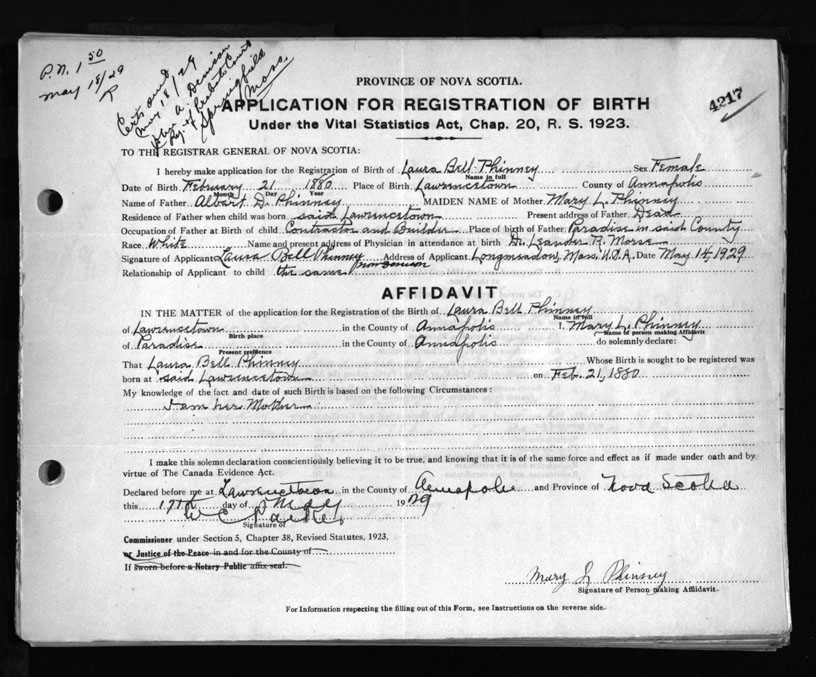 P.N. 1 50
May 18/29
P
Certs and
May 18/29
John A. Denison
Reg. of Probate Court
Springfield
Mass.
4217
PROVINCE OF NOVA SCOTIA.
APPLICATION FOR REGISTRATION OF BIRTH
Under the Vital Statistics Act, Chap. 20, R. S. 1923.
TO THE REGISTRAR GENERAL OF NOVA SCOTIA:
I hereby make application for the Registration of Birth of Laura Bell Phinney Sex Female
Name in full
Date of Birth February 21 1880 Place of Birth Lawrencetown County of Annapolis
Month Day Year
Name of Father Albert D. Phinney MAIDEN NAME of Mother Mary L. Phinney
Residence of Father when child was born said Lawrencetown Present address of Father Dead
Occupation of Father at Birth of child Contractor and Builder Place of birth of Father Paradise in said County
Race White Name and present address of Physician in attendance at birth Dr. Leander R. Morse
Signature of Applicant Laura Bell Phinney Address of Applicant Longmeadow, Mass. U.S.A. Date May 14, 1929
Relationship of Applicant to child the same person
AFFIDAVIT
IN THE MATTER of the application for the Registration of the Birth of Laura Bell Phinney
Name in full
of Lawrencetown in the County of Annapolis I, Mary L. Phinney
Birth place Name of person making Affidavit
of Paradise in the County of Annapolis do solemnly declare:
Present residence
That Laura Bell Phinney Whose Birth is sought to be registered was
born at said Lawrencetown on Feb. 21, 1880
My knowledge of the fact and date of such Birth is based on the following Circumstances:
I am her Mother
I make this solemn declaration conscientiously believing it to be true, and knowing that it is of the same force and effect as if made under oath and by
virtue of The Canada Evidence Act.
Declared before me at Lawrencetown in the County of Annapolis and Province of Nova Scotia
this 17th day of May 1929
W C Parker
Signature of
Commissioner under Section 5, Chapter 38, Revised Statutes, 1923,
or Justice of the Peace in and for the County of
If sworn before a Notary Public affix seal.
Mary L Phinney
Signature of Person making Affidavit.
For Information respecting the filling out of this Form, see Instructions on the reverse side.